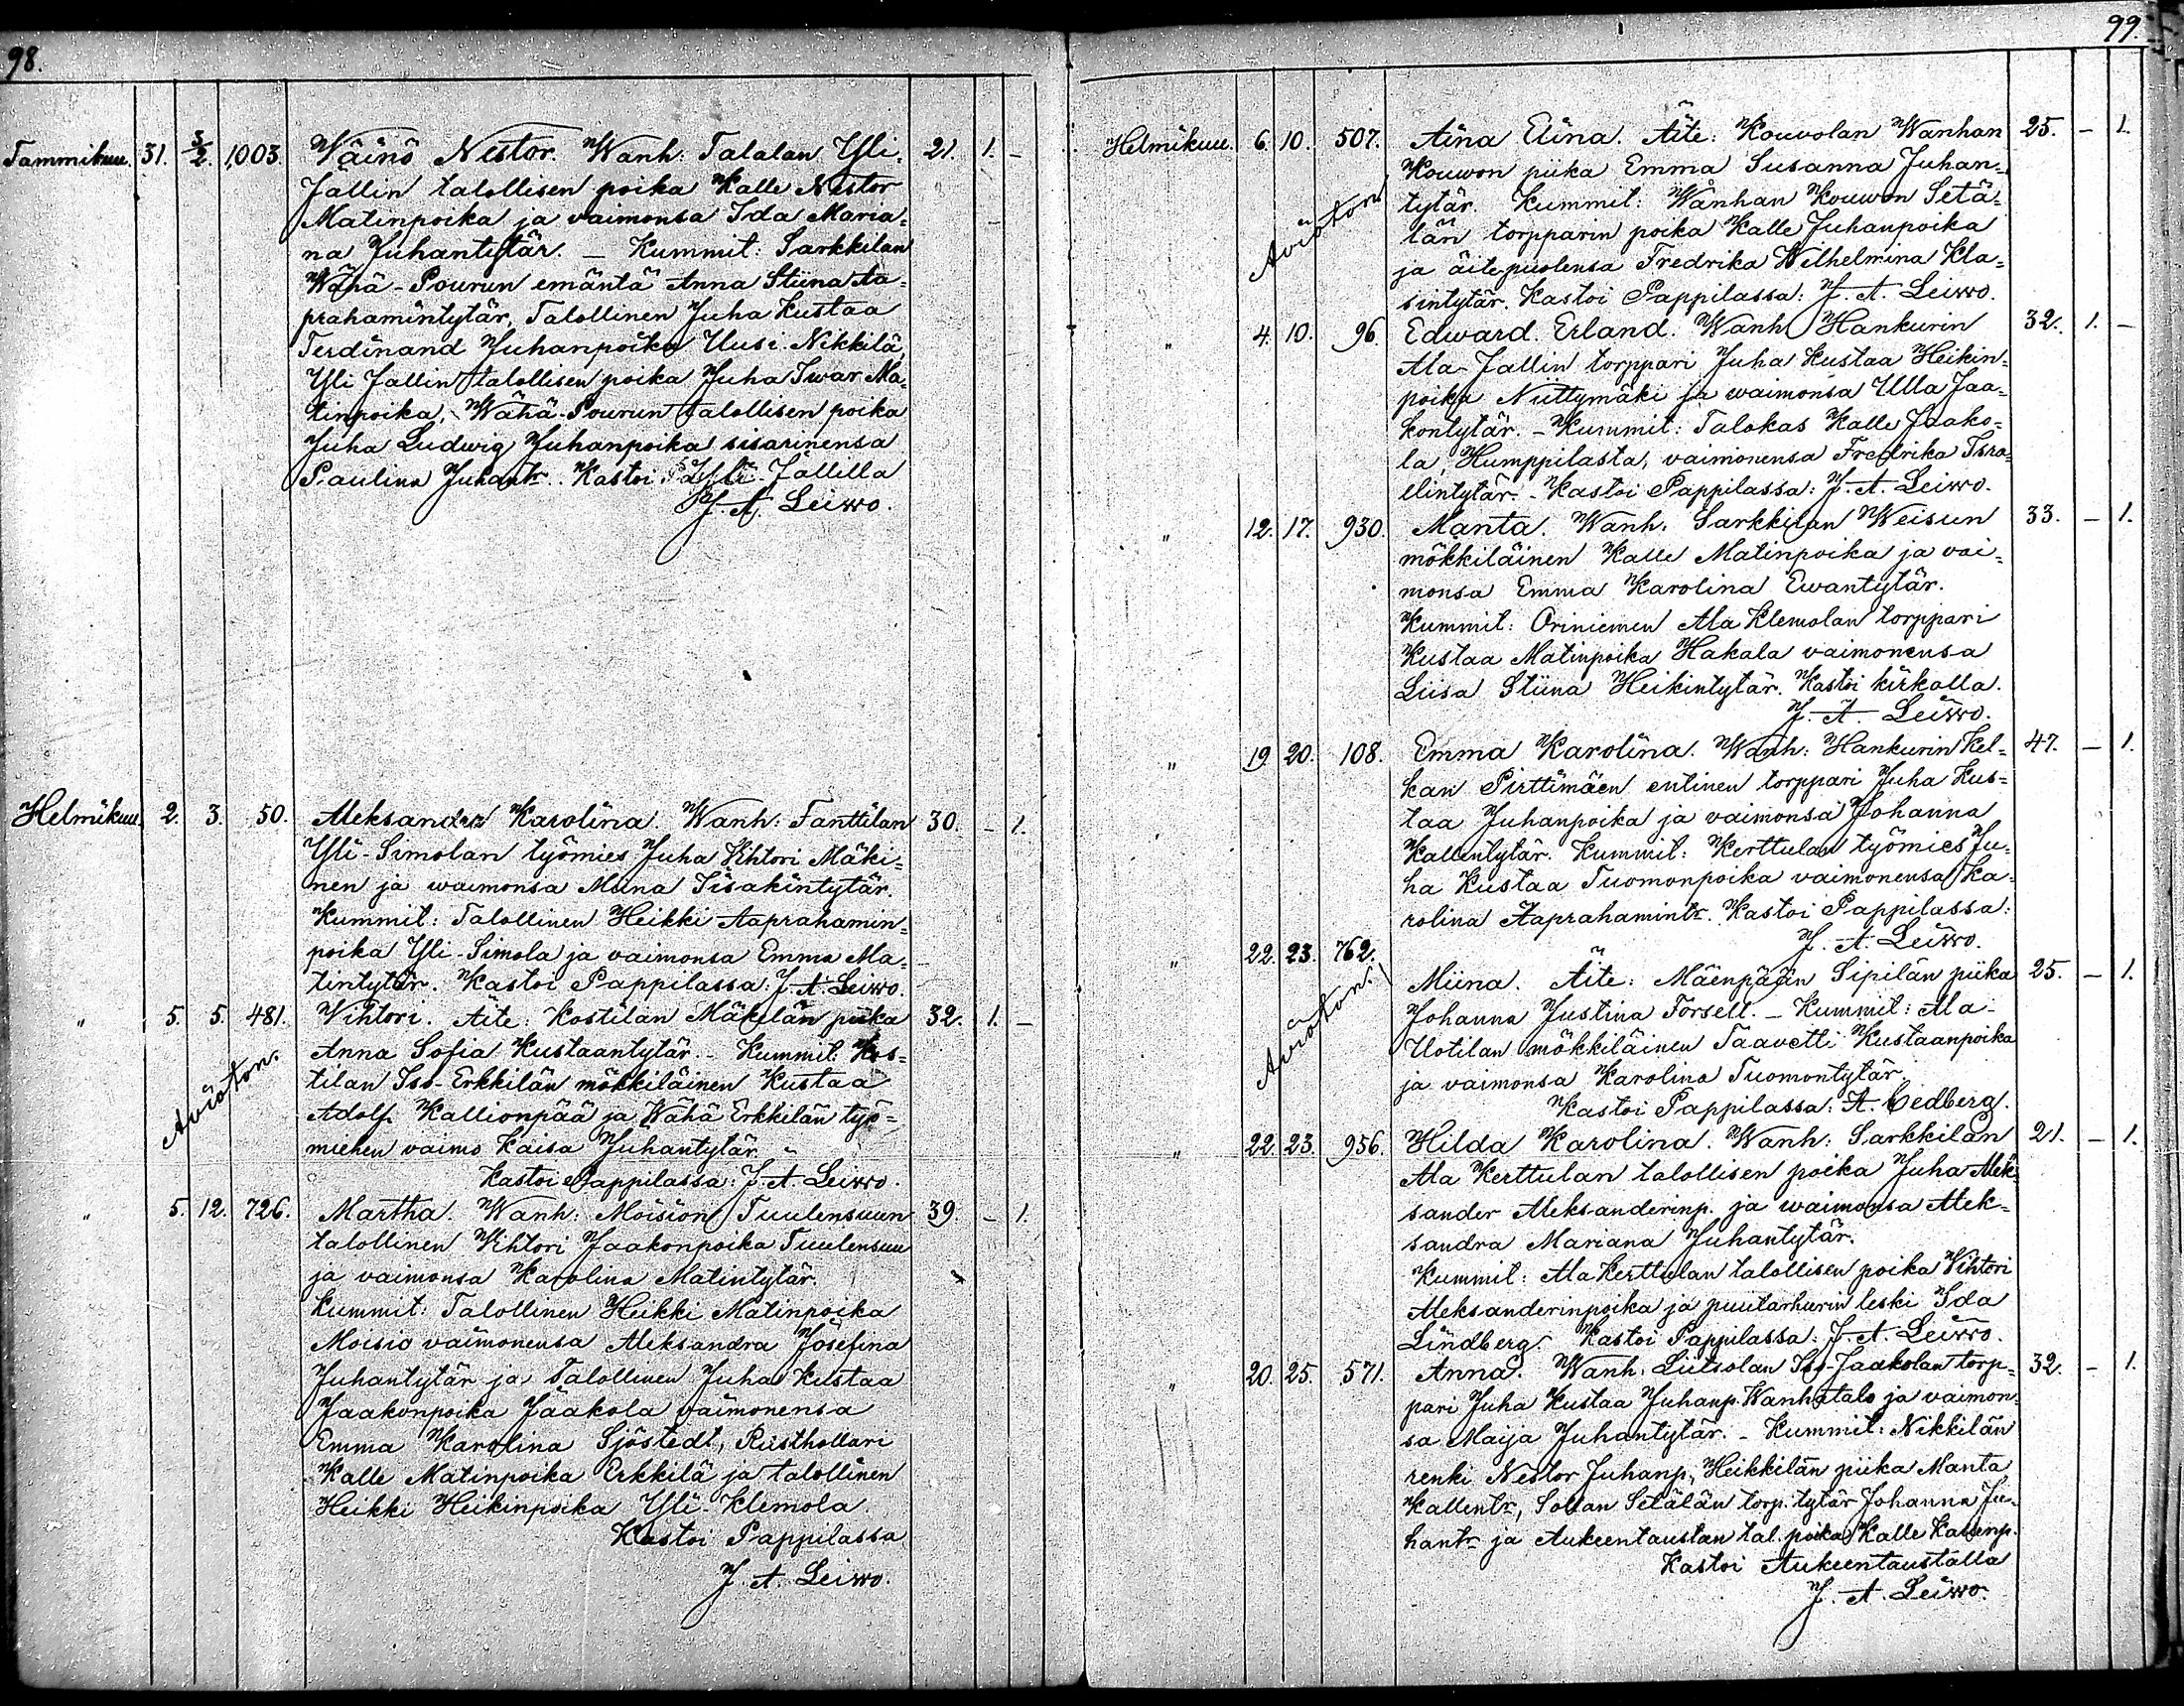 98.
Tammikuu. 31. 3/2. 1,003. Väinö Nestor. Wanh: Talalan Yli- 21. 1. -
Jällin talollisen poika Kalle Nestor
Matinpoika ja vaimonsa Ida Maria-
na Juhantytär. - Kummit: Sarkkilan
Wähä-Pourun emäntä Anna Stiina Aa-
prahamintytär, Talollinen Juha Kustaa
Ferdinand Juhanpoika Uusi-Nikkilä,
Yli Jallin talollisen poika Juha Iwar Ma-
tinpoika, Wähä-Pourun talollisen poika
Juha Ludwig Juhanpoika sisarinensa
Paulina Juhantr. Kastoi Yli-Jällilla
J. A. Leiwo.
Helmikuu. 2. 3. 50. Aleksandra Karolina. Wanh: Tanttilan 30. - 1.
Yli-Simolan työmies Juha Vihtori Mäki-
nen ja waimonsa Miina Iisakintytär.
Kummit: Talollinen Heikki Aaprahamin-
poika Yli-Simola ja vaimonsa Emma Ma-
tintytär. Kastoi Pappilassa: J. A. Leiwo.
" 5. 5. 481. Vihtori. Äite: Kostilan Mäkilän piika 32. 1. -
Avioton.
Anna Sofia Kustaantytär. - Kummit: Kos-
tilan Iso-Erkkilän mökkiläinen Kustaa
Adolf Kallionpää ja Wähä Erkkilän työ-
miehen vaimo Kaisa Juhantytär.
Kastoi Pappilassa: J. A. Leiwo.
" 5. 12. 726. Martha. Wanh: Moision Tuulensuun 39. - 1.
talollinen Vihtori Jaakonpoika Tuulensuu
ja vaimonsa Karolina Matintytär.
Kummit: Talollinen Heikki Matinpoika
Moisio vaimonensa Aleksandra Josefina
Juhantytär ja Talollinen Juha Kustaa
Jaakonpoika Jaakola vaimonensa
Emma Karolina Sjöstedt, Rusthollari
Kalle Matinpoika Erkkilä ja talollinen
Heikki Heikinpoika Yli-Klemola.
Kastoi Pappilassa
J. A. Leiwo.
99.
Helmikuu. 6. 10. 507. Aina Elina. Äite: Kouvolan Wanhan 25. - 1.
Avioton
Kouwon piika Emma Susanna Juhan-
tytär. Kummit: Wanhan Kouwon Setä-
län torpparin poika Kalle Juhanpoika
ja äitepuolensa Fredrika Wilhelmina Kla-
sintytär. Kastoi Pappilassa: J. A. Leiwo.
" 4. 10. 96. Edward Erland. Wanh. Hankurin 32. 1. -
Ala-Jallin torppari Juha Kustaa Heikin-
poika Niittymäki ja waimonsa Ulla Jaa-
kontytär. - Kummit: Talokas Kalle Jaako-
la, Humppilasta, vaimonensa Fredrika Isra-
elintytär. - Kastoi Pappilassa: J. A. Leiwo.
" 12. 17. 930. Manta. Wanh. Sarkkilan Weisun 33. - 1.
mökkiläinen Kalle Matinpoika ja vai-
monsa Emma Karolina Ewantytär.
Kummit: Oriniemen Ala Klemolan torppari
Kustaa Matinpoika Hakala vaimonensa
Liisa Stiina Heikintytär. Kastoi kirkolla.
J. A. Leiwo.
" 19. 20. 108. Emma Karolina. Wanh: Hankurin Kel- 47. - 1.
kan Pirttimäen entinen torppari Juha Kus-
taa Juhanpoika ja vaimonsa Johanna
Kallentytär. Kummit: Kerttulan työmies Ju-
ha Kustaa Tuomonpoika vaimonensa Ka-
rolina Aaprahamintr. Kastoi Pappilassa:
J. A. Leiwo.
" 22. 23. 762. Miina. Äite: Mäenpään Sipilän piika 25. - 1.
Avioton.
Johanna Justina Forsell. - Kummit: Ala-
Uotilan mökkiläinen Taavetti Kustaanpoika
ja vaimonsa Karolina Tuomontytär.
Kastoi Pappilassa: A. Cedberg.
" 22. 23. 956. Hilda Karolina. Wanh: Sarkkilan 21. - 1.
Ala Kerttulan talollisen poika Juha Alek-
sander Aleksanderinp. ja waimonsa Alek-
sandra Mariana Juhantytär.
Kummit: Ala Kerttulan talollisen poika Vihtori
Aleksanderinpoika ja puutarhurin leski Ida
Lindberg. Kastoi Pappilassa: J. A. Leiwo.
" 20. 25. 571. Anna. Wanh. Liitsolan Iso-Jaakolan torp- 32. - 1.
pari Juha Kustaa Juhanp. Wanhatalo ja vaimon-
sa Maija Juhantytär. - Kummit: Nikkilän
renki Nestor Juhanp., Heikkilän piika Manta
Kallentr., Setälän torp. tytär Johanna Ju-
hantr. ja Aukeentaustan tal. poika Kalle Kallenp.
Kastoi Aukeentaustalla
J. A. Leiwo.